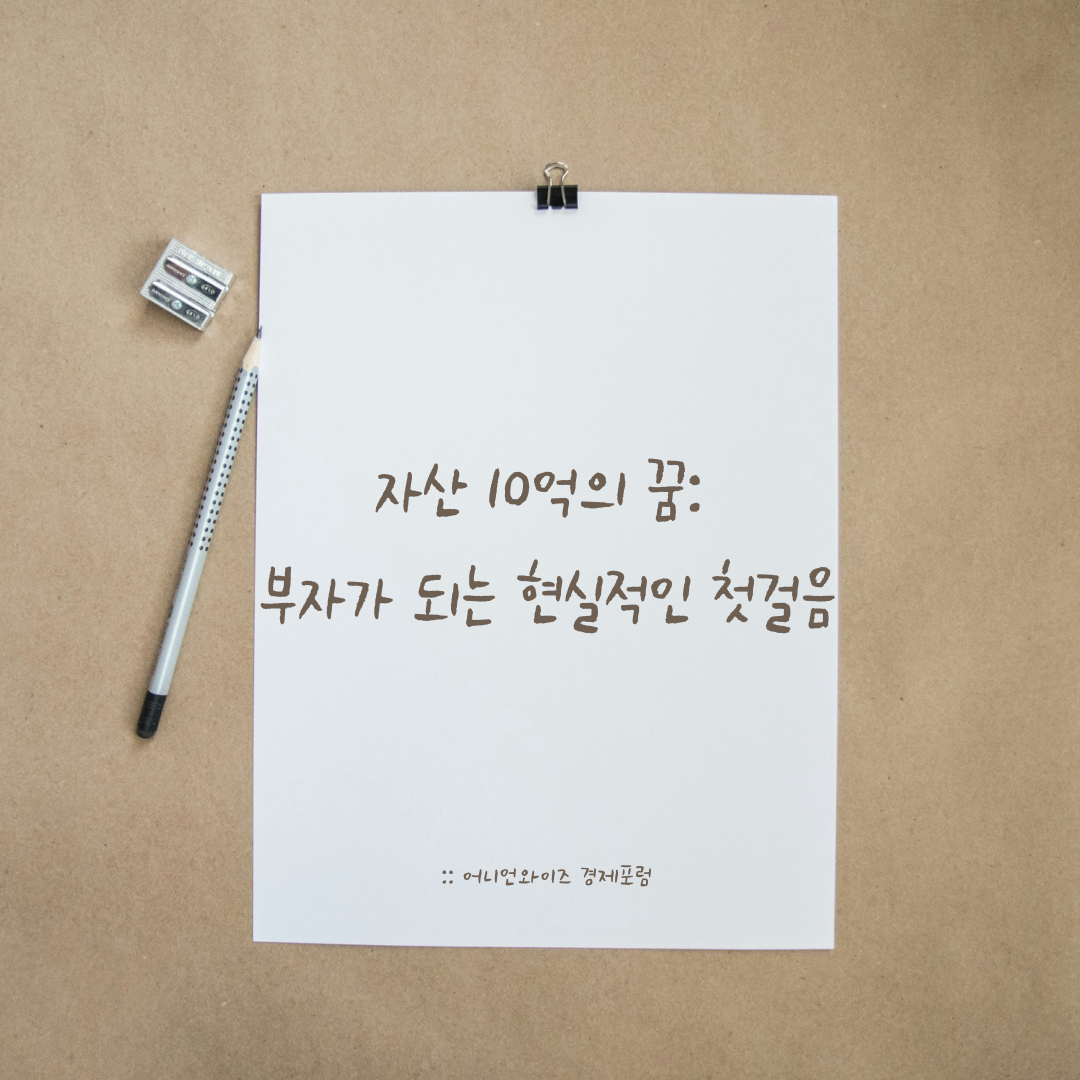 자산 10억의 꿈:
부자가 되는 현실적인 첫걸음
:: 어니언와이즈 경제포럼